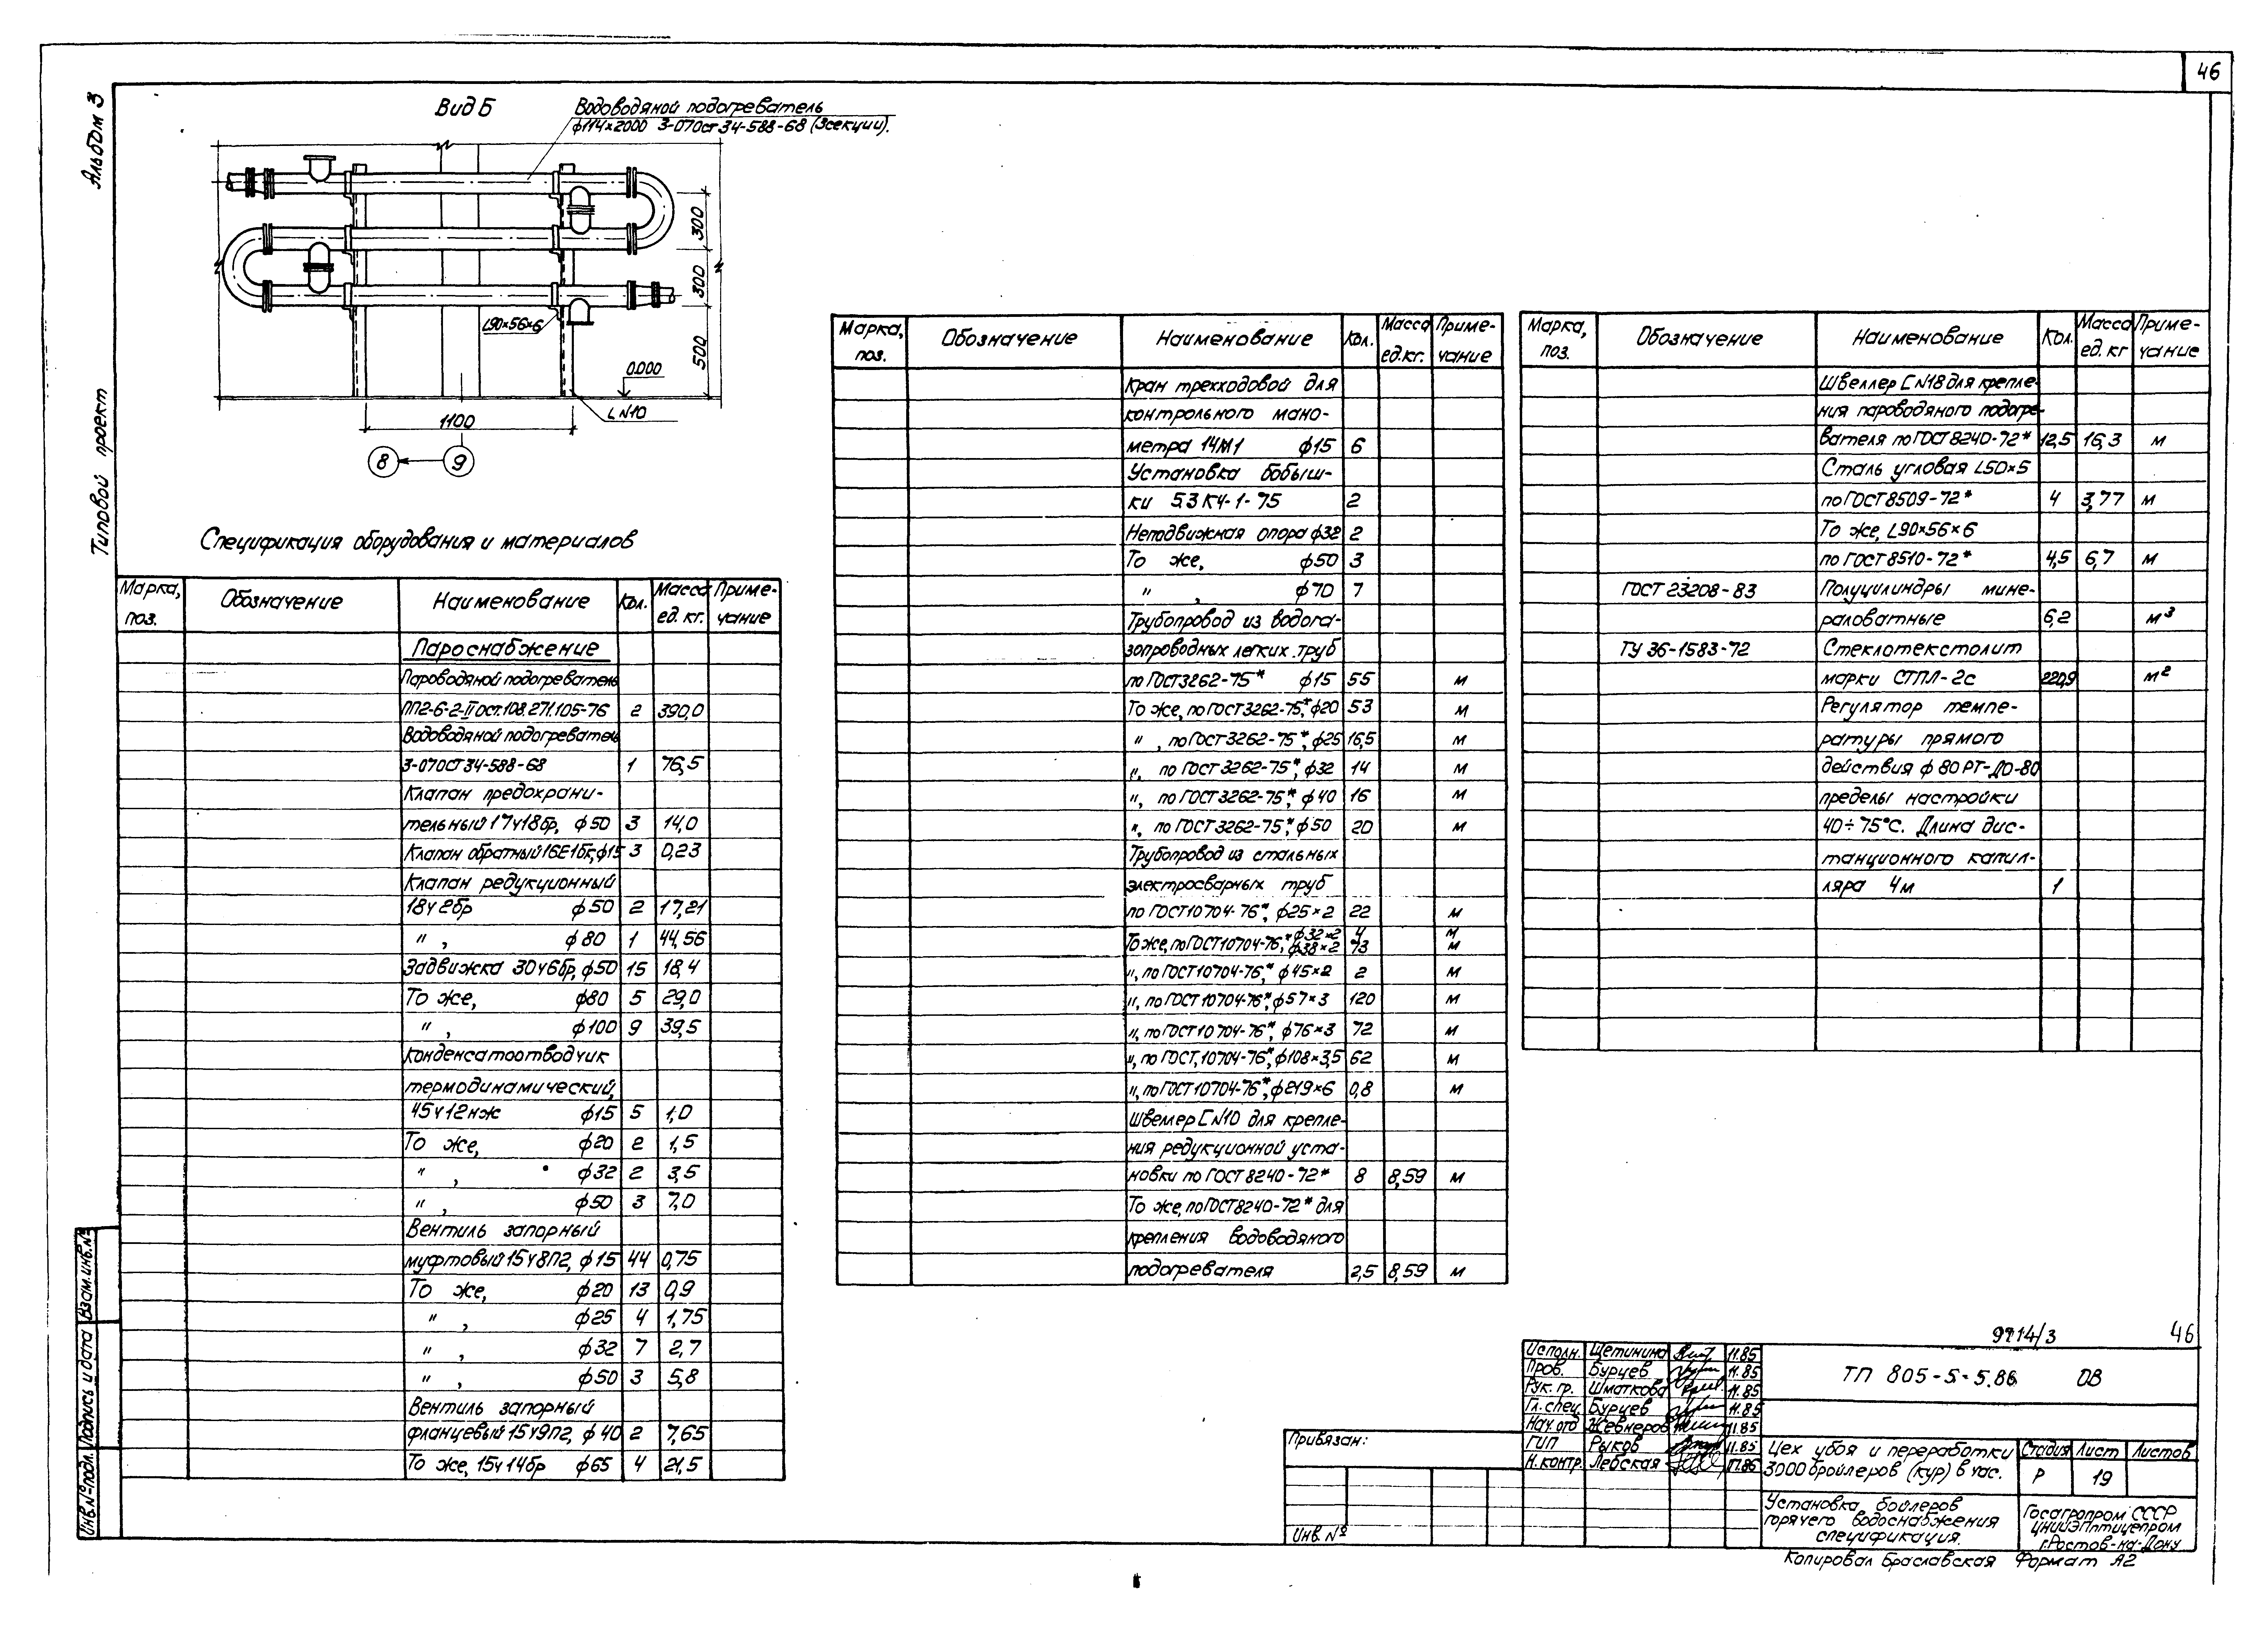 46
Альбом 3
Типовой проект
Вид Б
Водоводяной подогреватель
ф114×2000 3-07ОСТ 34-588-68 (3 секции).
300
300
500
L90×56×6
0.000
[ N10
1100
8 9
Спецификация оборудования и материалов
Марка, поз. Обозначение Наименование Кол. Масса ед. кг. Приме-чание
Пароснабжение
Пароводяной подогреватель
ПП2-6-2-II Ост.108.271.105-76 2 390,0
Водоводяной подогреватель
3-07ОСТ 34-588-68 1 76,5
Клапан предохрани-
тельный 17ч18бр, ф50 3 14,0
Клапан обратный 16Б1бк, ф15 3 0,23
Клапан редукционный
18ч2бр ф50 2 17,21
" , ф80 1 44,56
Задвижка 30ч6бр, ф50 15 18,4
То же, ф80 5 29,0
" , ф100 9 39,5
Конденсатоотводчик
термодинамический,
45ч12нж ф15 5 1,0
То же, ф20 2 1,5
" , ф32 2 3,5
" , ф50 3 7,0
Вентиль запорный
муфтовый 15ч8П2, ф15 44 0,75
То же, ф20 13 0,9
" , ф25 4 1,75
" , ф32 7 2,7
" , ф50 3 5,8
Вентиль запорный
фланцевый 15ч9П2, ф40 2 7,65
То же, 15ч14бр ф65 4 21,5
Марка, поз. Обозначение Наименование Кол. Масса ед.кг. Приме-чание
Кран трехходовой для
контрольного мано-
метра 14М1 ф15 6
Установка бобыш-
ки 5.3К4-1-75 2
Неподвижная опора ф32 2
То же, ф50 3
" , ф70 7
Трубопровод из водога-
зопроводных легких труб
по ГОСТ 3262-75* ф15 55 м
То же, по ГОСТ 3262-75*, ф20 53 м
" , по ГОСТ 3262-75*, ф25 16,5 м
", по ГОСТ 3262-75*, ф32 14 м
", по ГОСТ 3262-75*, ф40 16 м
", по ГОСТ 3262-75*, ф50 20 м
Трубопровод из стальных
электросварных труб
по ГОСТ 10704-76*, ф25×2 22 м
То же, по ГОСТ 10704-76*, ф32×2 4 м
ф38×2 73 м
", по ГОСТ 10704-76*, ф45×2 2 м
", по ГОСТ 10704-76*, ф57×3 120 м
", по ГОСТ 10704-76*, ф76×3 72 м
", по ГОСТ, 10704-76*, ф108×3,5 62 м
", по ГОСТ 10704-76*, ф219×6 0,8 м
Швеллер [ N10 для крепле-
ния редукционной уста-
новки по ГОСТ 8240-72* 8 8,59 м
То же, по ГОСТ 8240-72* для
крепления водоводяного
подогревателя 2,5 8,59 м
Марка, поз. Обозначение Наименование Кол. Масса ед. кг Приме-чание
Швеллер [ N18 для крепле-
ния пароводяного подогре-
вателя по ГОСТ 8240-72* 12,5 16,3 м
Сталь угловая L50×5
по ГОСТ 8509-72* 4 3,77 м
То же, L90×56×6
по ГОСТ 8510-72* 4,5 6,7 м
ГОСТ 23208-83 Полуцилиндры мине-
раловатные 6,2 м3
ТУ 36-1583-72 Стеклотекстолит
марки СТПЛ-2с 220,9 м2
Регулятор темпе-
ратуры прямого
действия ф 80 РТ-ДО-80
пределы настройки
40÷75°С. Длина дис-
танционного капил-
ляра 4м 1
9714/3 46
Исполн. Щетинина 11.85
Пров. Бурцев 11.85
Рук. гр. Шматкова 11.85
Гл. спец. Бурцев 11.85
Нач. отд Жевнеров 11.85
ГИП Рыков 11.85
Н. контр. Лебская
ТП 805-5-5.86 ОВ
Цех убоя и переработки
3000 бройлеров (кур) в час.
Стадия Лист Листов
Р 19
Установка бойлеров
горячего водоснабжения
спецификация.
Госагропром СССР
ЦНИИЭПптицепром
г.Ростов-на-Дону
Привязан:
Инв. №
Копировал Браславская Формат А2
Инв.№ подл. Подпись и дата Взам.инв.№